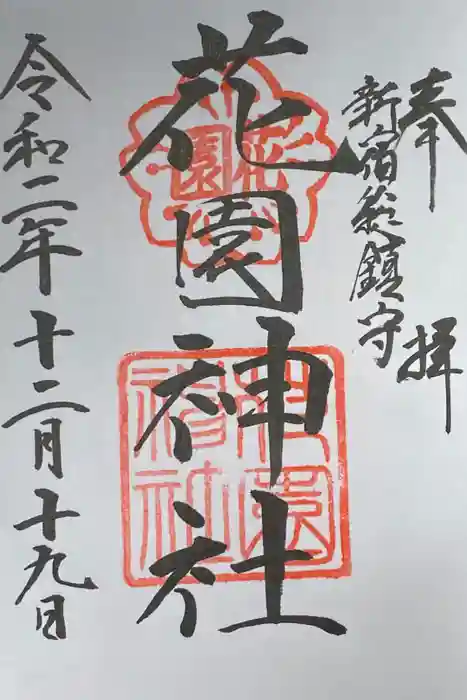 奉拝
新宿総鎮守
花園神社
花園
花園神社
令和二年十二月十九日